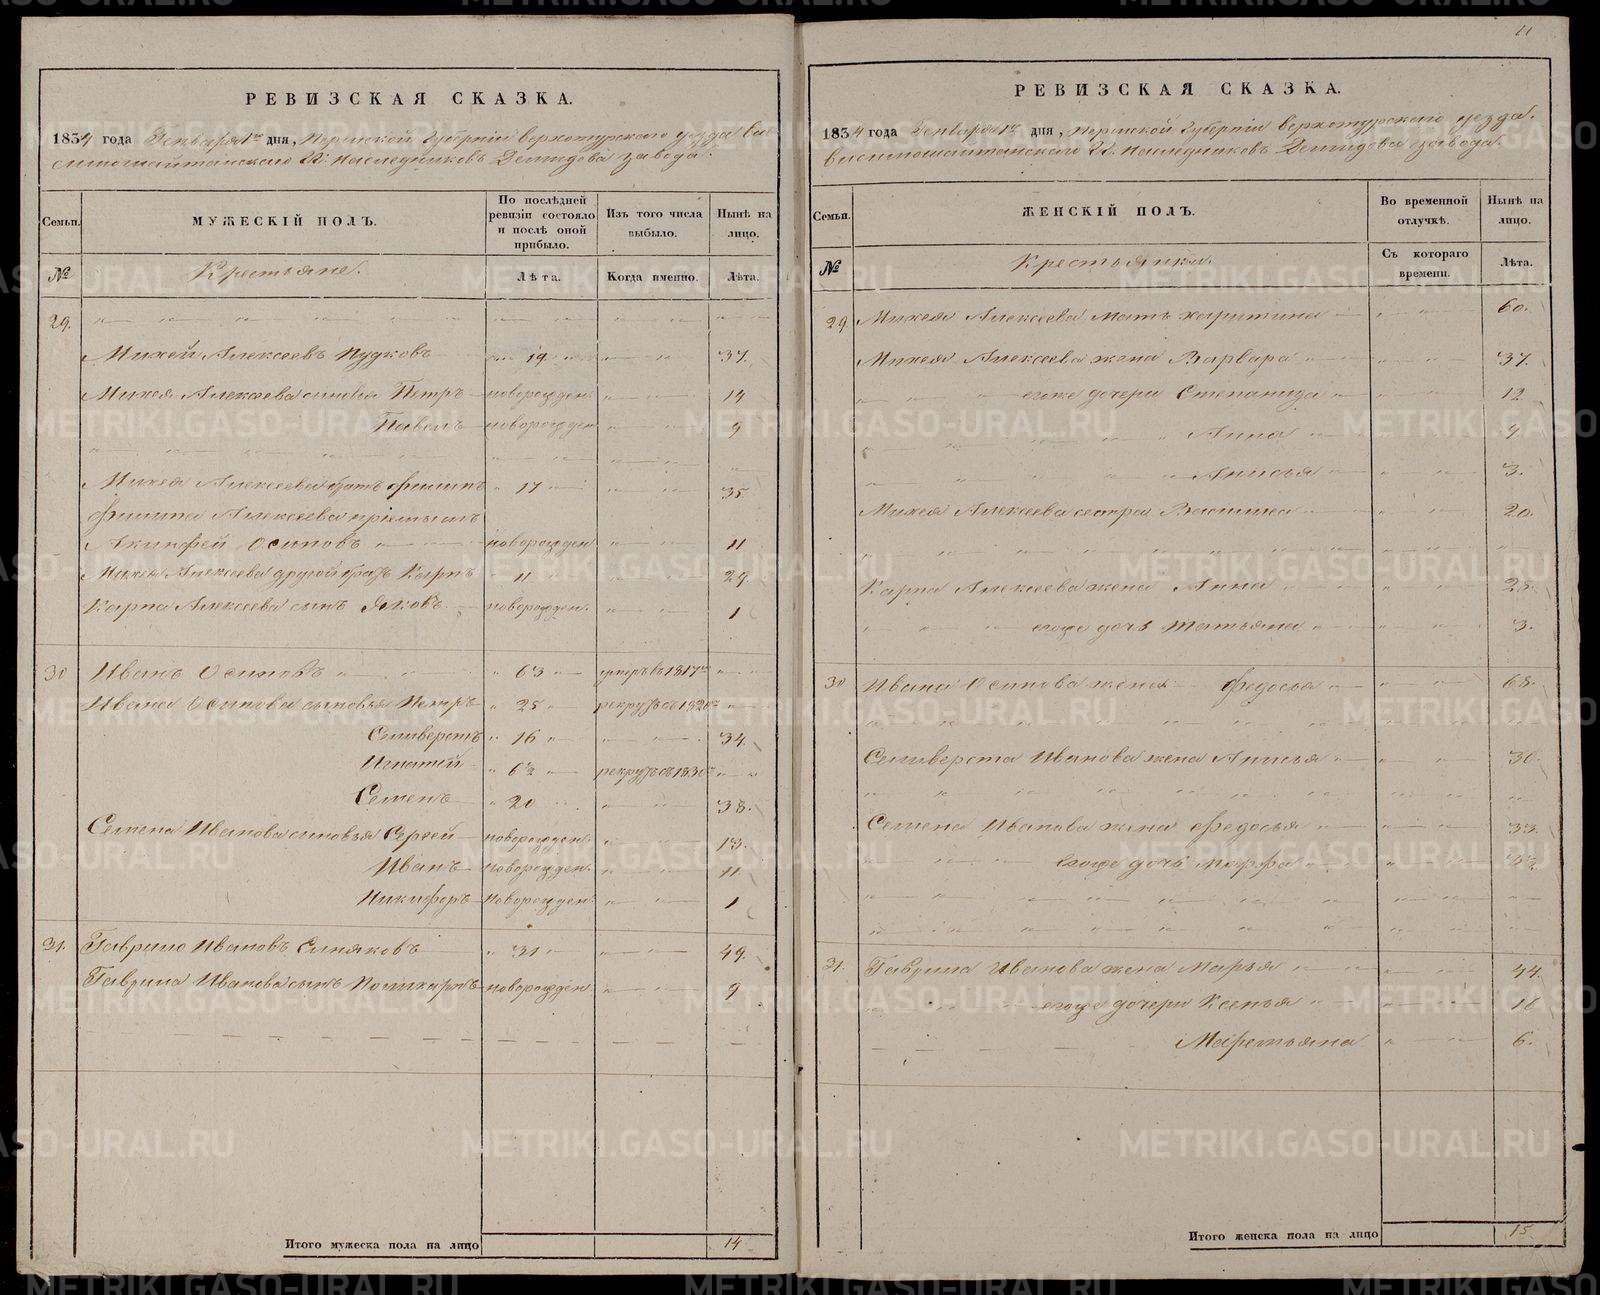 РЕВИЗСКАЯ СКАЗКА.
1834 года Генваря 1го дня, Пермской Губерніи верхотурскаго уезда ви-
симошайтанскаго Гг. Наследниковъ Демидова завода.
Семьи. МУЖЕСКІЙ ПОЛЪ. По послѣдней ревизіи состояло и послѣ оной прибыло. Изъ того числа выбыло. Нынѣ на лицо.
№ Крестьяне. Лѣта. Когда именно. Лѣта.
29.
Михей Алексеевъ Пудковъ 19 37.
Михея Алексеева сыновья Петръ новорожден. 14
Павелъ новорожден 9
Михея Алексеева братъ Филипъ 17 35.
Филипа Алексеева пріемышъ
Акинфей Осиповъ новорожден 11
Михея Алексеева другой братъ Карпъ 11 29.
Карпа Алексеева сынъ Яковъ новорожден. 1
30 Иванъ Осиповъ 63 умеръ въ 1817мъ
Ивана Осипова сыновья Петръ 25 рекрутъ съ 1820го
Селиверстъ 16 34.
Игнатей 6½ рекрутъ съ 1830го
Семенъ 20 38.
Семена Иванова сыновья Сергей новорожден. 13.
Иванъ новорожден. 11
Никифоръ новорожден. 1
31. Гаврило Ивановъ Симяковъ 31 49.
Гаврила Иванова сынъ Поликарпъ новорожден 9
Итого мужеска пола на лицо 14
11
РЕВИЗСКАЯ СКАЗКА.
1834 года Генваря 1го дня, Пермской Губерніи верхотурскаго уезда.
висимошайтанскаго Гг. Наследниковъ Демидова завода.
Семьи. ЖЕНСКІЙ ПОЛЪ. Во временной отлучкѣ. Нынѣ на лицо.
№ Крестьянки. Съ котораго времени. Лѣта.
29 Михея Алексеева мать Харитина 60.
Михея Алексеева жена Варвара 37.
егоже дочери Степанида 12
Анна 9
Анисья 3.
Михея Алексеева сестра Василиса 20.
Карпа Алексеева жена Анна 28.
егоже дочь Татьяна 3.
30 Ивана Осипова жена Федосья 68.
Селиверста Иванова жена Анисья 30.
Семена Иванова жена Федосья 33.
егоже дочь Марфа
31. Гаврила Иванова жена Марья 44.
егоже дочери Ксенья 18
Маремьяна 6.
Итого женска пола на лицо 15
METRIKI.GASO-URAL.RU